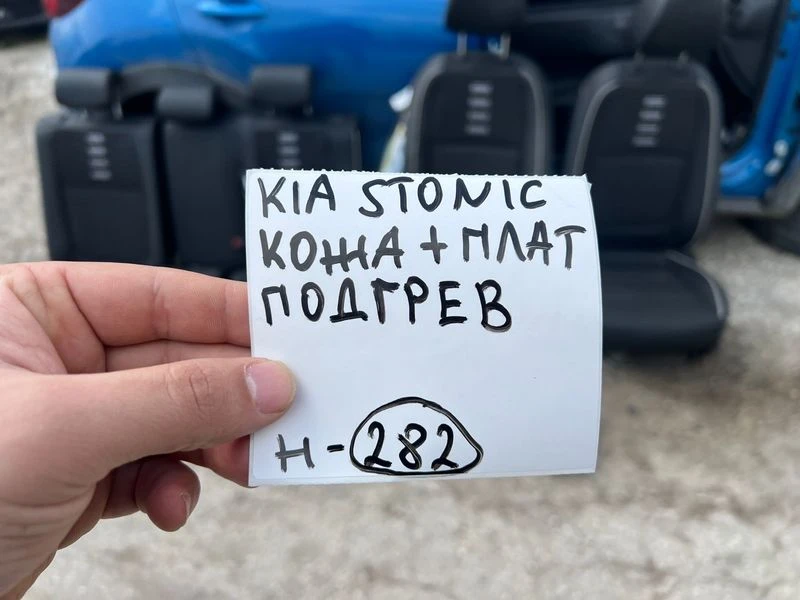 KIA STONIC
КОЖА + ПЛАТ
ПОДГРЕВ
Н-282